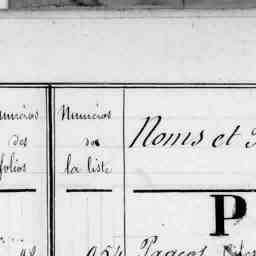 Numéros
des
folios
Numéros
de
la liste
Noms et
P
954 Pageot